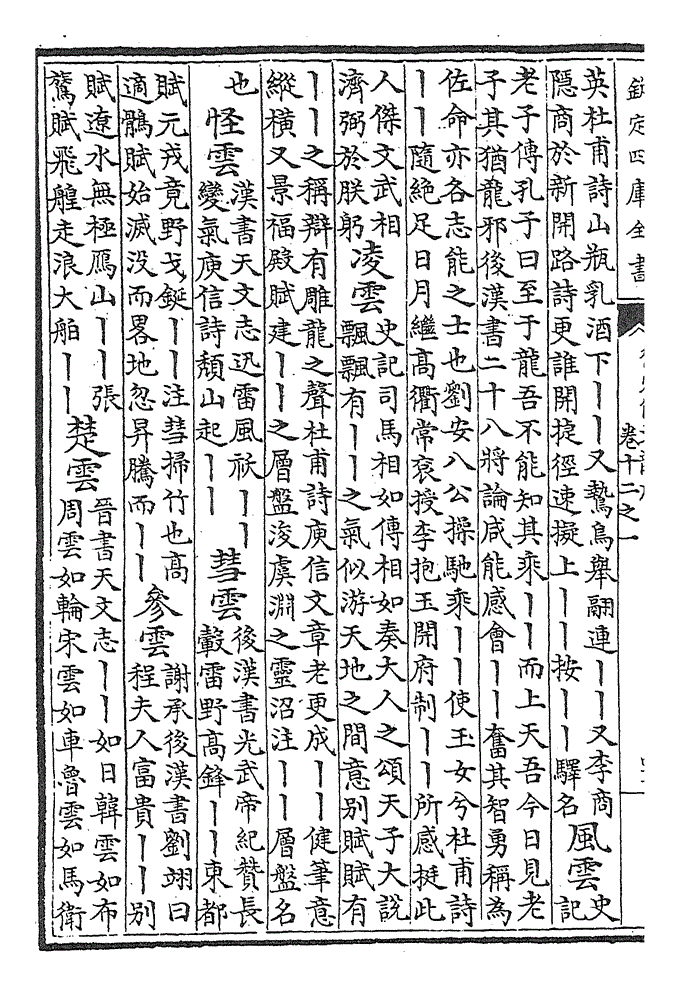 欽定四庫全書
卷十二之一
英杜甫詩山瓶乳酒下丨丨又鷙鳥舉翮連丨丨又李商
隱商於新開路詩更誰開捷徑速擬上丨丨按丨丨驛名
風雲
史
記
老子傳孔子曰至于龍吾不能知其乘丨丨而上天吾今日見老
子其猶龍邪後漢書二十八將論咸能感會丨丨奮其智勇稱為
佐命亦各志能之士也劉安八公操馳乘丨丨使玉女兮杜甫詩
丨丨隨絕足日月繼高衢常袞授李抱玉開府制丨丨所感挺此
人傑文武相
濟弼於朕躬
凌雲
史記司馬相如傳相如奏大人之頌天子大說
飄飄有丨丨之氣似游天地之間意別賦賦有
丨丨之稱辯有雕龍之聲杜甫詩庾信文章老更成丨丨健筆意
縱橫又景福殿賦建丨丨之層盤浚虞淵之靈沼注丨丨層盤名
也
怪雲
漢書天文志迅雷風祅丨丨
變氣庾信詩頹山起丨丨
彗雲
後漢書光武帝紀贊長
轂雷野高鋒丨丨東都
賦元戎竟野戈鋋丨丨注彗掃竹也高
適鶻賦始滅没而畧地忽昇騰而丨丨
參雲
謝承後漢書劉翊曰
程夫人富貴丨丨別
賦遼水無極鴈山丨丨張
鷟賦飛艎走浪大舶丨丨
楚雲
晉書天文志丨丨如日韓雲如布
周雲如輪宋雲如車魯雲如馬衛